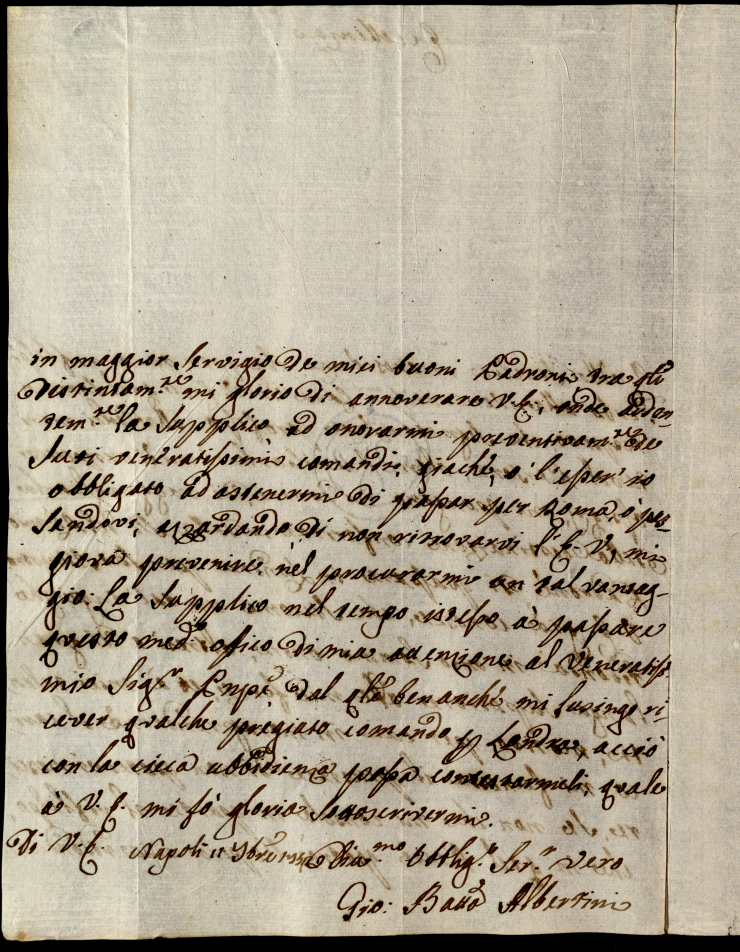 in maggior servigio de miei buoni Padroni, tra gli
distintam.te mi glorio di annoverare V.E., onde arden-
tem.te la supplico ad onorarmi preventivam.te de
suoi veneratissimi comandi, giachè, o l'esser io
obbligato ad astenermi di passar per Roma, ò pas-
sandovi, azardando di non ritrovarvi l'E.V., mi
giova prevenire nel procurarmi un tal vantag-
gio: La supplico nel tempo istesso à passare
questo med.o officio di mia attenzione al Veneratiss-
mio Sig.r Enpē dal q̃le benanchè mi lusingo ri-
cever qualche pregiato comando p Londra, acciò
con la cieca ubbidienza possa contestarmeli, quale
à V.E. mi fò gloria sottoscrivermi.
Di V.E. Napoli 11 Div.mo Obblig.o Ser.r vero
Gio: Batta Albertini